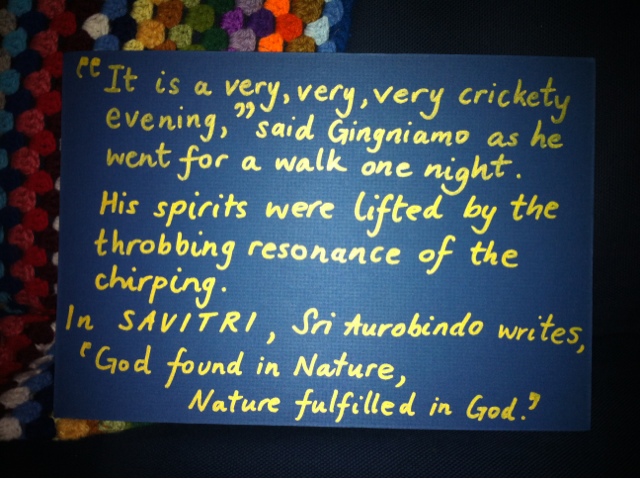 “It is a very, very, very crickety
evening,” said Gingniamo as he
went for a walk one night.
His spirits were lifted by the
throbbing resonance of the
chirping.
In SAVITRI, Sri Aurobindo writes,
‘God found in Nature,
Nature fulfilled in God.’